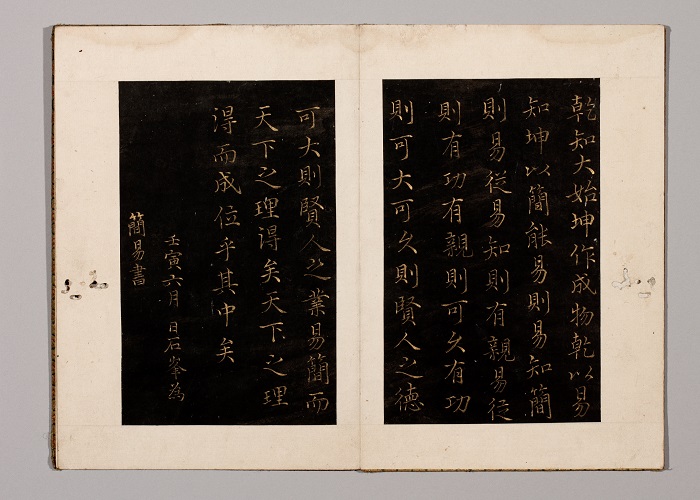 乾知大始坤作成物乾以易
知坤以簡能易則易知簡
則易從易知則有親易從
則有功有親則可久有功
則可大可久則賢人之德
可大則賢人之業易簡而
天下之理得矣天下之理
得而成位乎其中矣
壬寅六月日石峯為
簡易書